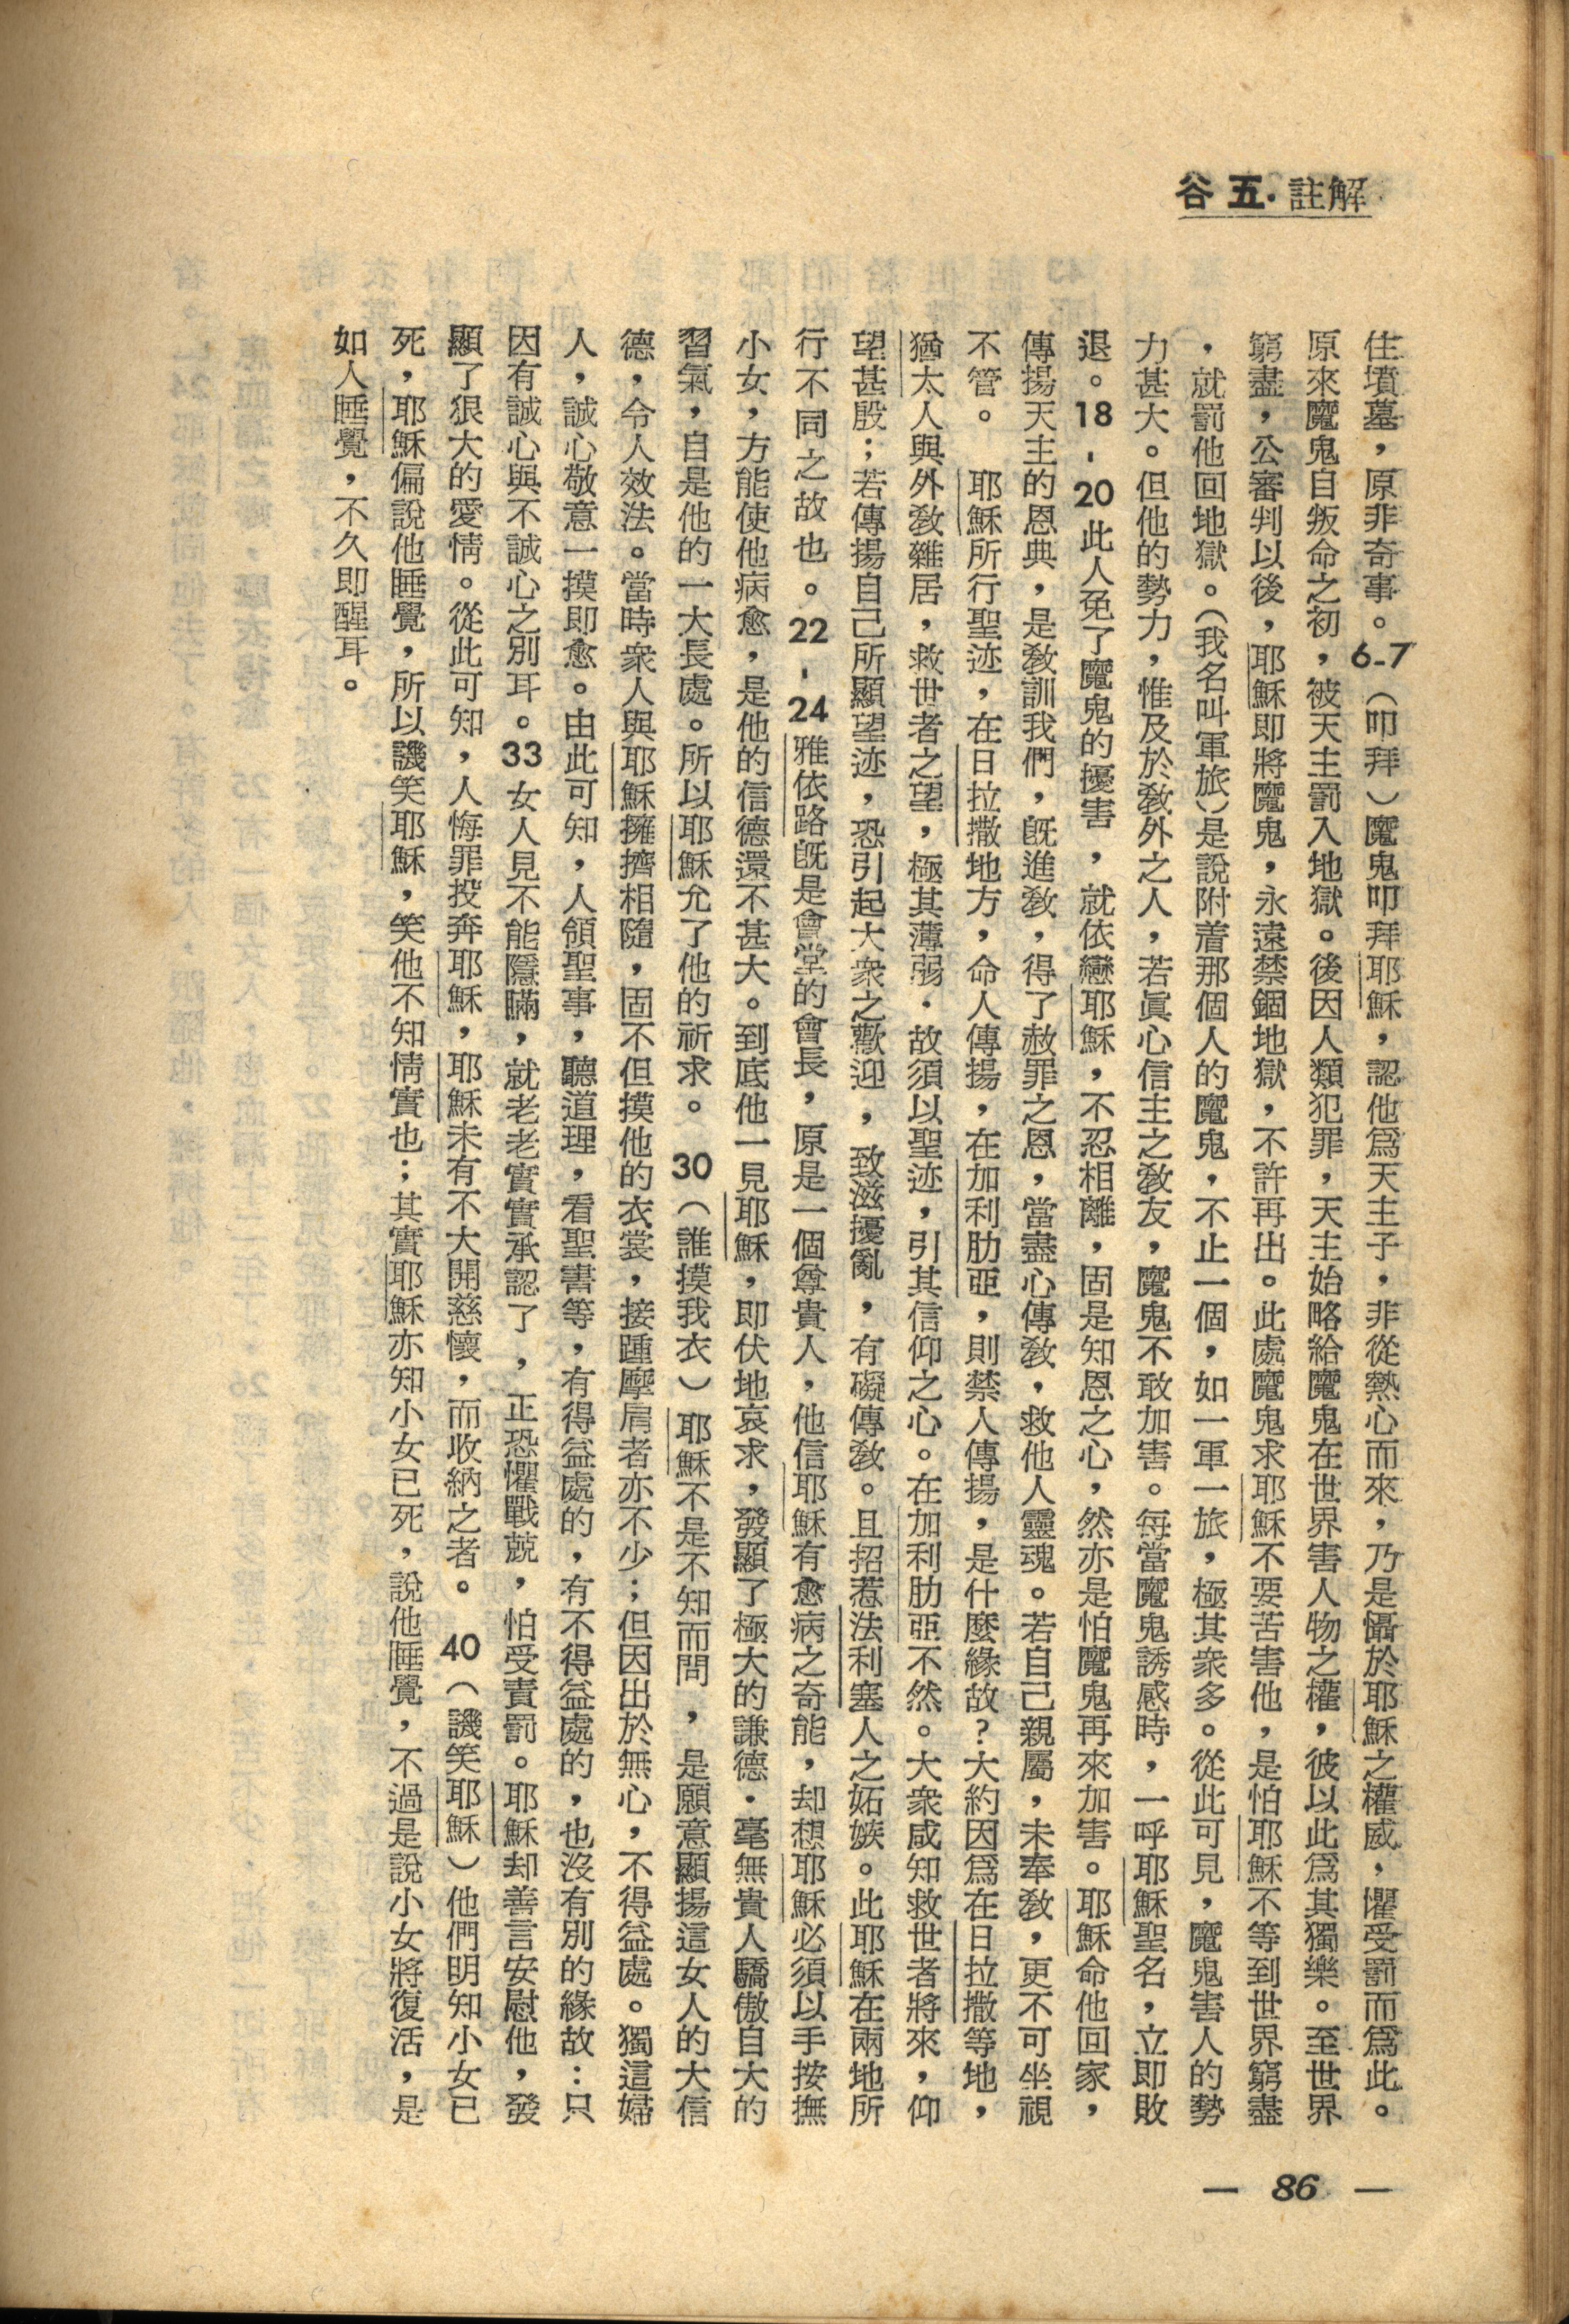 谷五·註解
住墳墓，原非奇事。6-7（叩拜）魔鬼叩拜耶穌，認他爲天主子，非從熱心而來，乃是懾於耶穌之權威，懼受罰而爲此。
原來魔鬼自叛命之初，被天主罰入地獄。後因人類犯罪，天主始略給魔鬼在世界害人物之權，彼以此爲其獨樂。至世界
窮盡，公審判以後，耶穌即將魔鬼，永遠禁錮地獄，不許再出。此處魔鬼求耶穌不要苦害他，是怕耶穌不等到世界窮盡
，就罰他回地獄。（我名叫軍旅）是說附着那個人的魔鬼，不止一個，如一軍一旅，極其衆多。從此可見，魔鬼害人的勢
力甚大。但他的勢力，惟及於敎外之人，若眞心信主之敎友，魔鬼不敢加害。每當魔鬼誘感時，一呼耶穌聖名，立即敗
退。18-20此人免了魔鬼的擾害，就依戀耶穌，不忍相離，固是知恩之心，然亦是怕魔鬼再來加害。耶穌命他回家，
傳揚天主的恩典，是敎訓我們，旣進敎，得了赦罪之恩，當盡心傳敎，救他人靈魂。若自己親屬，未奉敎，更不可坐視
不管。　耶穌所行聖迹，在日拉撒地方，命人傳揚，在加利肋亞，則禁人傳揚，是什麼緣故?大約因爲在日拉撒等地，
猶太人與外敎雜居，救世者之望，極其薄弱．故須以聖迹，引其信仰之心。在加利肋亞不然。大衆咸知救世者將來，仰
望甚殷；若傳揚自己所顯望迹，恐引起大衆之歡迎，致滋擾亂，有礙傳敎。且招惹法利塞人之妬嫉。此耶穌在兩地所
行不同之故也。22-24雅依路旣是會堂的會長，原是一個尊貴人，他信耶穌有愈病之奇能，却想耶穌必須以手按撫
小女，方能使他病愈，是他的信德還不甚大。到底他一見耶穌，即伏地哀求，發顯了極大的謙德．毫無貴人驕傲自大的
習氣，自是他的一大長處。所以耶穌允了他的祈求。30（誰摸我衣）耶穌不是不知而問，是願意顯揚這女人的大信
德，令人效法。當時衆人與耶穌擁擠相隨，固不但摸他的衣裳，接踵摩肩者亦不少；但因出於無心，不得益處。獨這婦
人，誠心敬意一摸即愈。由此可知，人領聖事，聽道理，看聖書等，有得益處的，有不得益處的，也沒有別的緣故：只
因有誠心與不誠心之別耳。33女人見不能隱瞞，就老老實實承認了，正恐懼戰兢，怕受責罰。耶穌却善言安慰他，發
顯了狠大的愛情。從此可知，人悔罪投奔耶穌，耶穌未有不大開慈懷，而收納之者。40（譏笑耶穌）他們明知小女已
死，耶穌偏說他睡覺，所以譏笑耶穌，笑他不知情實也；其實耶穌亦知小女已死，說他睡覺，不過是說小女將復活，是
如人睡覺，不久即醒耳。
— 86 —